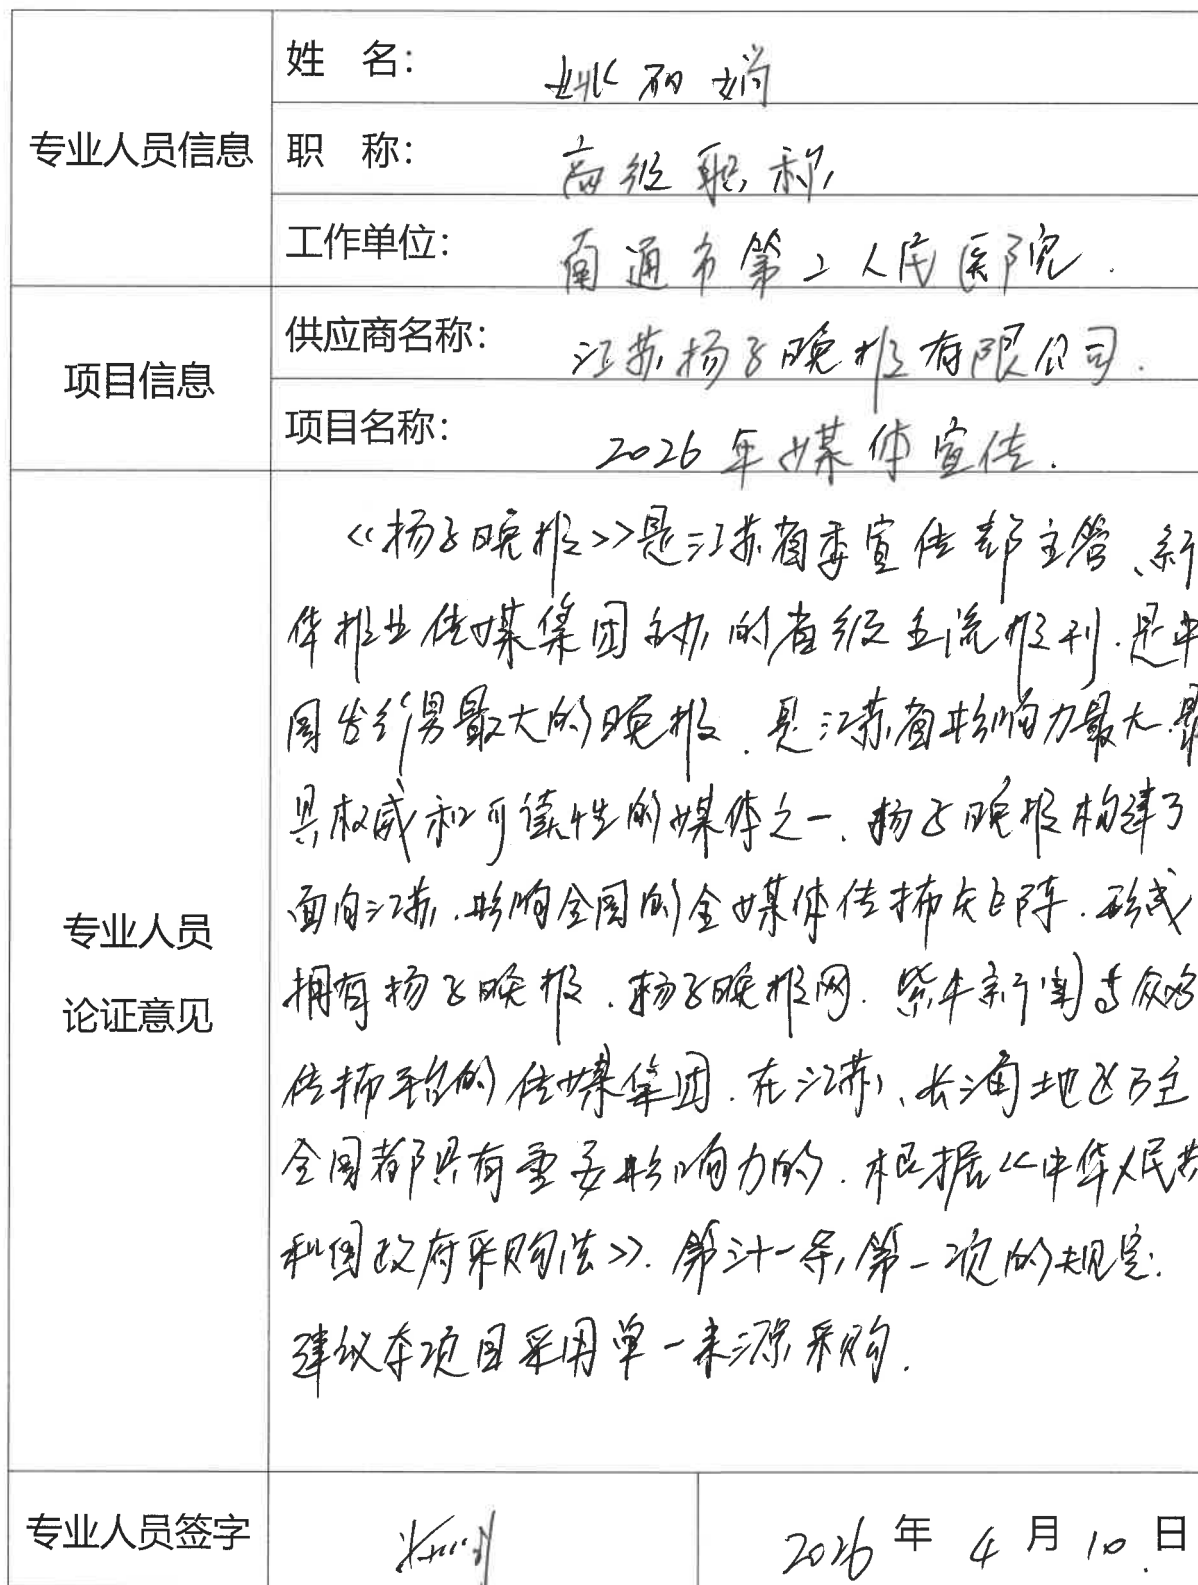 姓 名：
姚丽娟
专业人员信息
职 称：
高级职称
工作单位：
南通市第二人民医院.
项目信息
供应商名称：
江苏扬子晚报有限公司.
项目名称：
2026年媒体宣传.
专业人员
论证意见
《扬子晚报》是江苏省委宣传部主管、新
华报业传媒集团主办的省级主流报刊.是中
国发行量最大的晚报.是江苏省影响力最大.最
具权威和可读性的媒体之一.扬子晚报构建了
面向江苏.影响全国的全媒体传播矩阵.形成
拥有扬子晚报.扬子晚报网.紫牛新闻等众多
传播平台的传媒集团.在江苏、长三角地区乃至
全国都具有重要影响力的.根据《中华人民共
和国政府采购法》.第三十一条,第一项的规定:
建议本项目采用单一来源采购.
专业人员签字
2026年 4月10日